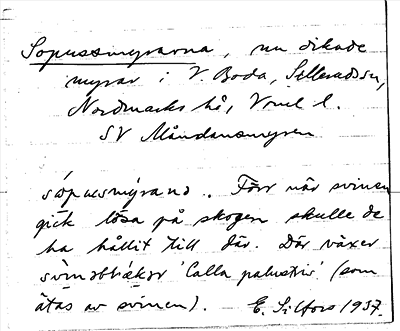 Sopussmyrarna, nu dikade
myrar i V. Boda,
Nordmarks hd, Vrml l.
SV Måndansmyren
Förr när svinen
gick lösa på skogen skulle de
ha hållit till där. Där växer
'Calla palustris' (som
ätas av svinen). E. 1937.